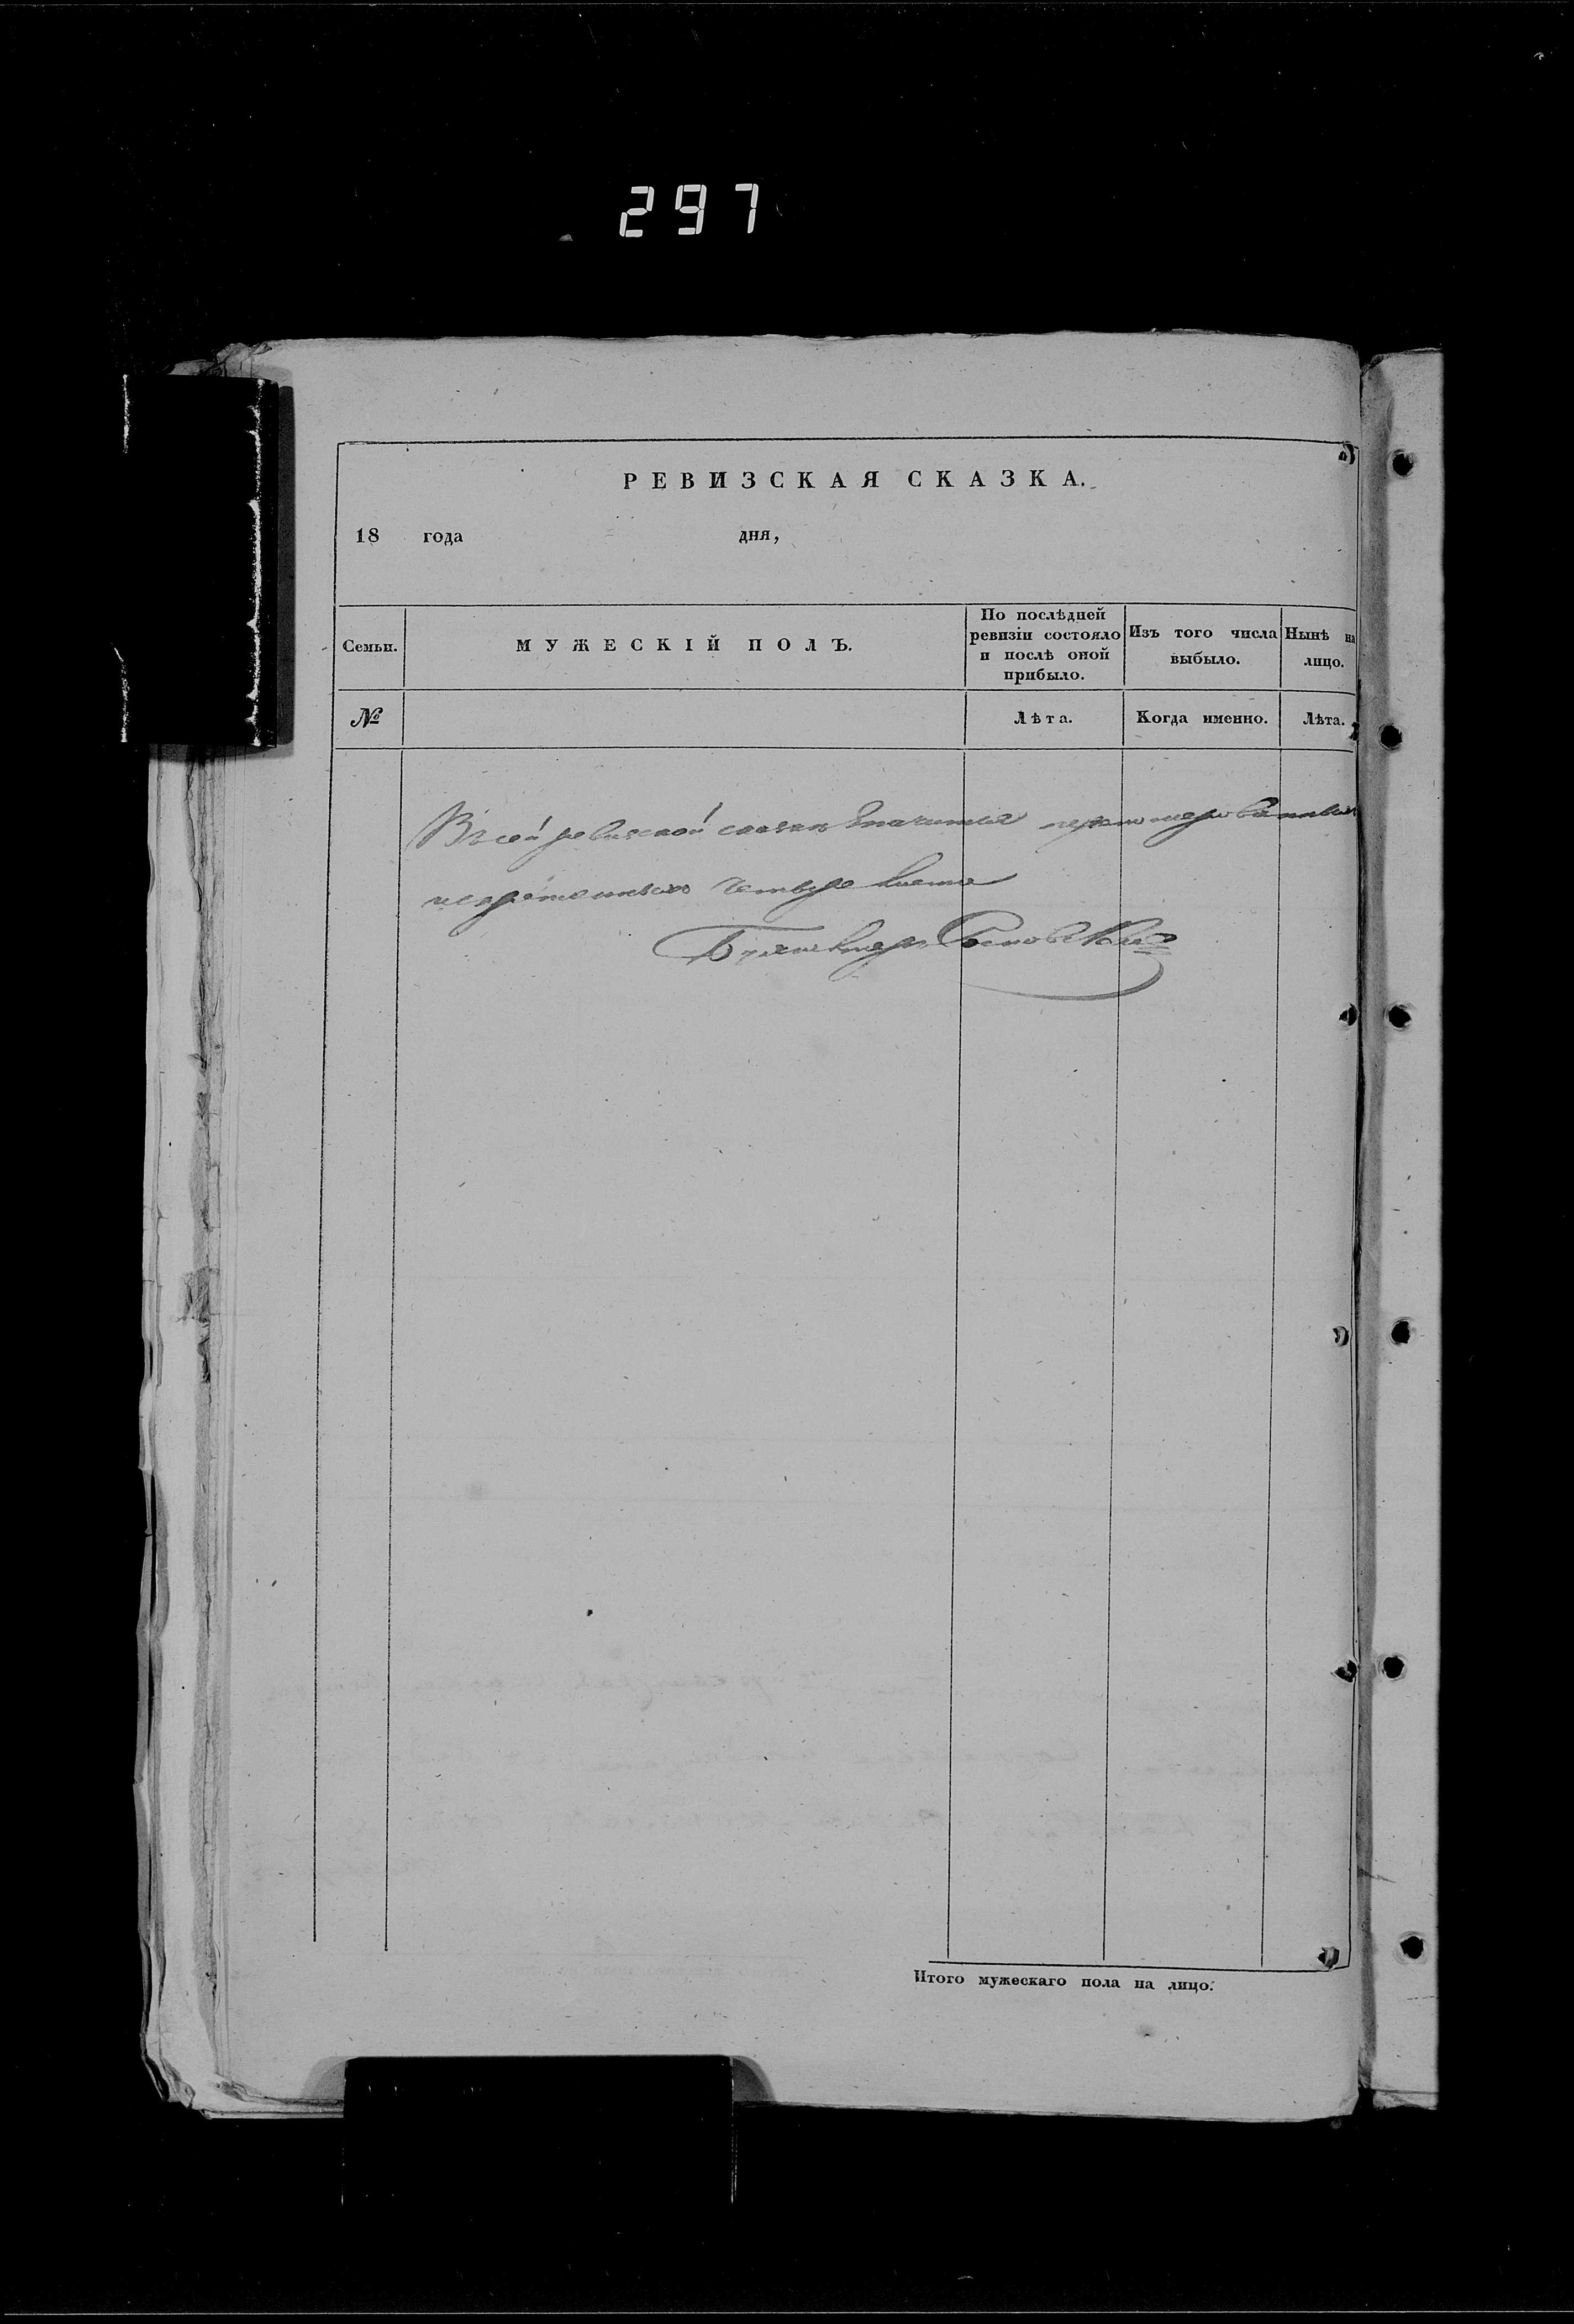 297
РЕВИЗСКАЯ СКАЗКА.
18 года дня,
Семьи.
МУЖЕСКІЙ ПОЛЪ.
По послѣдней ревизіи состояло и послѣ оной прибыло.
Изъ того числа выбыло.
Нынѣ на лицо.
№
Лѣта.
Когда именно.
Лѣта.
Въ сей ревизской сказкѣ значится перенумерованныхъ
и скрепленныхъ четыре листа
Бухгалтеръ
Итого мужескаго пола на лицо.